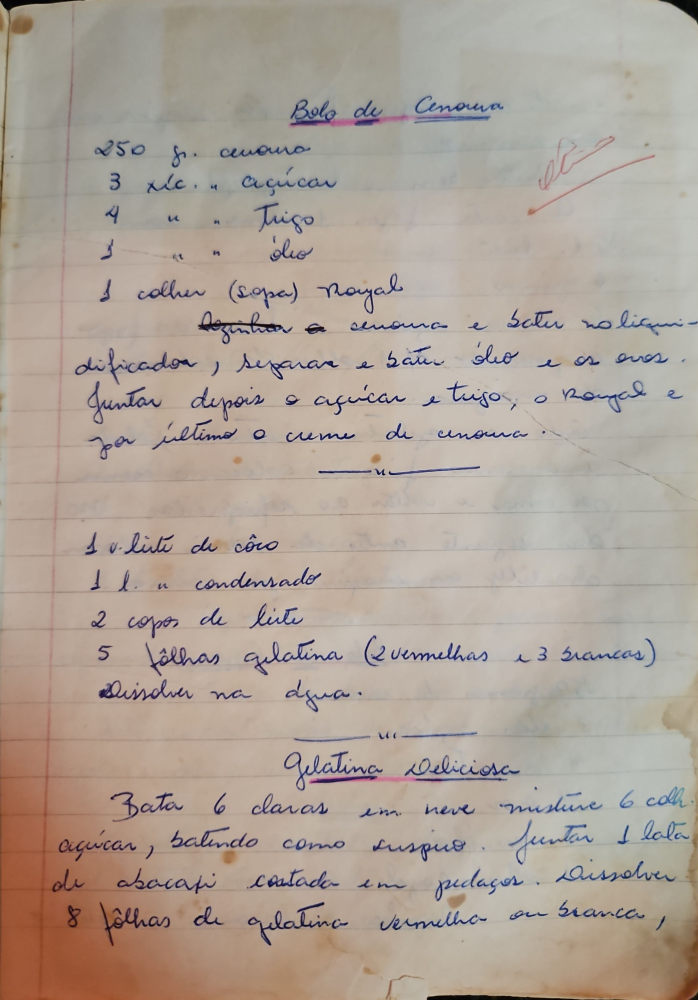 Bolo de Cenoura
250 gr. cenoura
3 xíc. " açúcar
4 " " trigo
1 " " óleo
1 colher (sopa) Royal
cozinhar a cenoura e bater no liqui-
dificador, separar e bater óleo e os ovos.
Juntar depois o açúcar e trigo, o Royal e
por último o creme de cenoura.
"
1 v. leite de côco
1 l. " condensado
2 copos de leite
5 fôlhas gelatina (2 vermelhas e 3 brancas)
Dissolver na água.
"'
Gelatina Deliciosa
Bata 6 claras em neve misture 6 colh.
açúcar, batendo como suspiro. Juntar 1 lata
de abacaxi cortada em pedaços. Dissolver
8 fôlhas de gelatina vermelha ou branca,